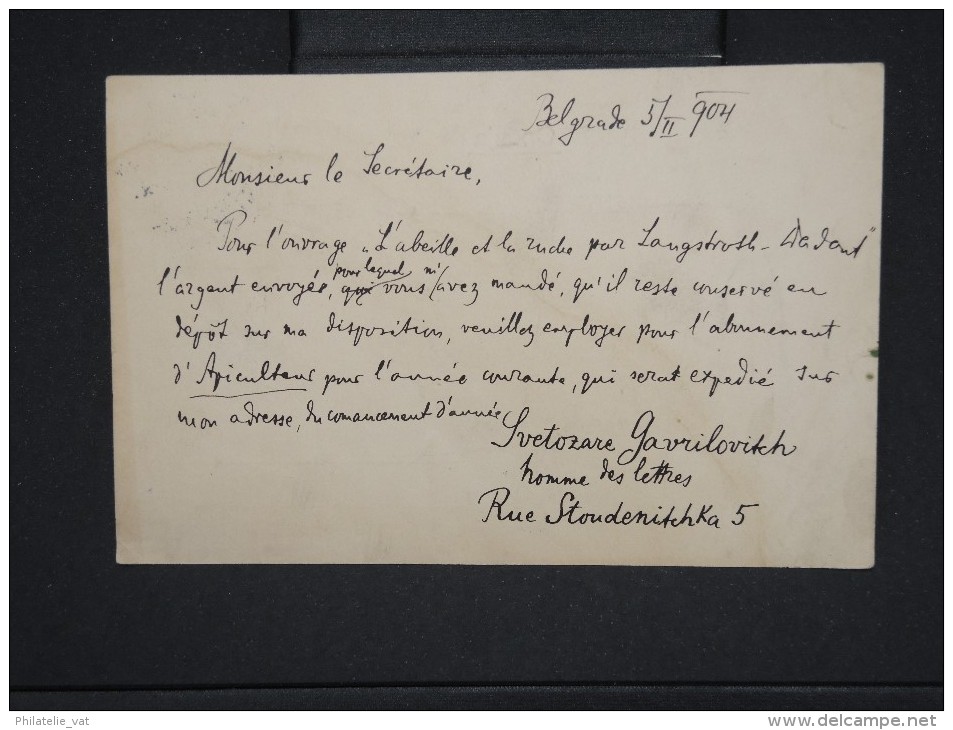 Belgrade 5/II 904
Monsieur le Secrétaire,
Pour l'ouvrage „L'abeille et la ruche par Langstroth-Dadant"
pour lequel ni
l'argent envoyée, qui vous avez mandé, qu'il reste conservé en
dépôt sur ma disposition, veuillez employer pour l'abonnement
d'Apiculteur pour l'année courante, qui serat expedié sur
mon adresse, du comancement d'année
Svetozare Gavrilovitch
homme des lettres
Rue Stoudenitchka 5
Philatelie_vat
delcampe.net